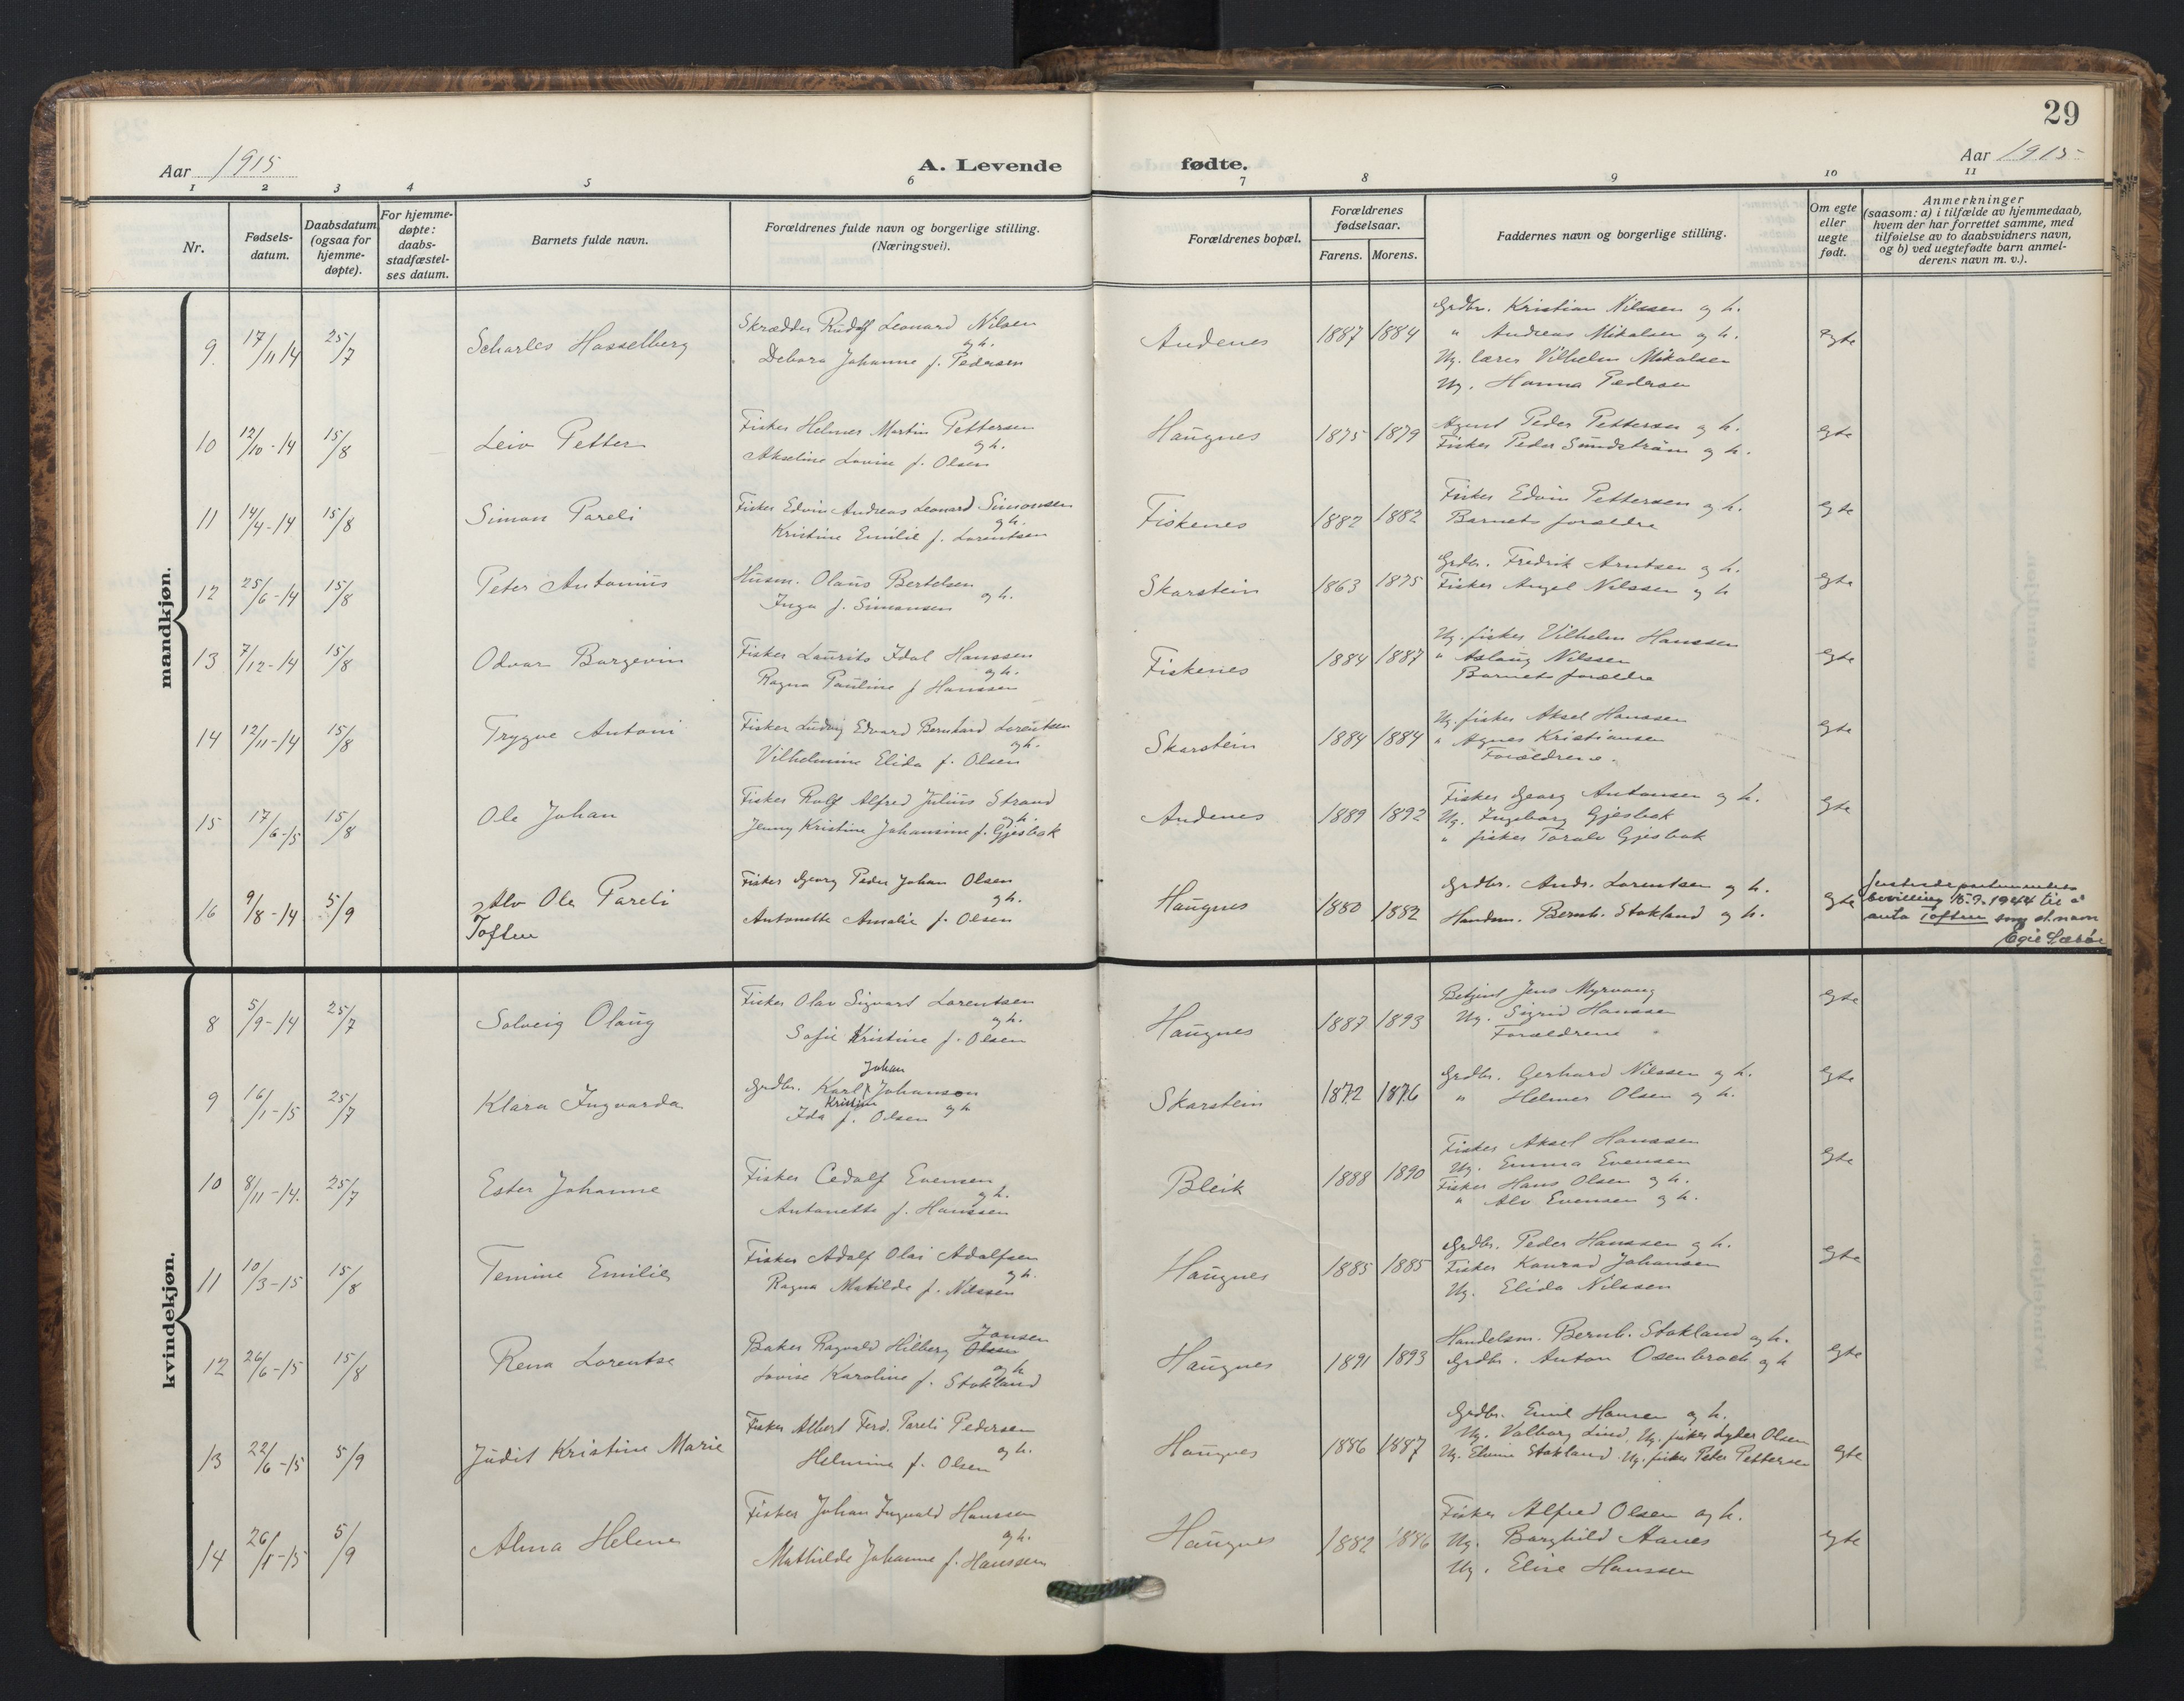 29
Aar 1915
A. Levende
fødte.
Aar 1915
1 2 3 4 5 6 7 8 9 10 11
Nr.
Fødsels-
datum.
Daabsdatum
(ogsaa for
hjemme-
døpte).
For hjemme-
døpte:
daabs-
stadfæstel-
ses datum.
Barnets fulde navn.
Forældrenes fulde navn og borgerlige stilling.
(Næringsvei).
Forældrenes bopæl.
Forældrenes
fødselsaar.
Farens. Morens.
Faddernes navn og borgerlige stilling.
Om egte
eller
uegte
født.
Anmerkninger
(saasom: a) i tilfælde av hjemmedaab,
hvem der har forrettet samme, med
tilføielse av to daabsvidners navn,
og b) ved uegtefødte barn anmel-
derens navn m. v.).
mandkjøn.
9. 17/11 14 25/7 Scharles Hasselberg
Skrædder Rudolf Leonard Nilsen
og h.
Debora Johanne f. Pedersen
Andenes 1887 1884
Grdbr. Kristian Nilssen og h.
" Andreas Mikalsen og h.
Ug. lærer Vilhelm Mikalsen
Ug. Hanna Pedersen
egte
10 12/10-14 15/8 Leiv Petter
Fisker Helmer Martin Pettersen
og h.
Akseline Lovise f. Olsen
Haugnes 1875 1879
Agent Peder Pettersen og h.
Fisker Peder Sundström og h.
egte
11 14/4-14 15/8 Simon Pareli
Fisker Edvin Andreas Leonard Simonsen
og h.
Kristine Emilie f. Lorentsen
Fiskenes 1882 1882
Fisker Edvin Pettersen og h.
Barnets forældre
egte
12 25/6-14 15/8 Peter Antonius
Husm. Olaus Bertelsen
og h.
Inga f. Simonsen
Skarstein 1863 1875
Grdbr. Fredrik Arntsen og h.
Fisker Angel Nilssen og h
egte
13 7/12-14 15/8 Odvar Borgevin
Fisker Laurits Idal Hanssen
og h.
Ragna Pauline f Hanssen
Fiskenes 1884 1887
Ug. fisker Vilhelm Hanssen
" Aslaug Nilssen
Barnets forældre
egte
14 12/11-14 15/8 Trygve Antoni
Fisker Ludvig Edvard Bernhard Lorentsen
og h.
Vilhelmine Elida f. Olsen
Skarstein 1884 1884
Ug. fisker Aksel Hanssen
" Agnes Kristiansen
Forældrene.
egte
15 17/6-15 15/8 Ole Johan
Fisker Rolf Alfred Julius Strand
og h.
Jenny Kristine Johansine f. Gjesbak
Andenes 1889 1892
Fisker Georg Antonsen og h.
Ug. Ingeborg Gjesbak
" fisker Toralv Gjesbak
egte
16 9/8-14 5/9 Alv Ole Pareli
Toften
Fisker Georg Peder Johan Olsen
og h.
Antonette Amalie f. Olsen
Haugnes 1880 1882
Grdbr. Andr. Lorentsen og h.
Handm. Bernh. Stokland og h.
egte
Justisdepartementets
bevilling 15.7.1944 til å
anta Toften som sl.navn
kvindekjøn.
8 5/9-14 25/7 Solveig Olaug
Fisker Olav Sigvart Lorentsen
og h.
Sofie Kristine f. Olsen
Haugnes 1887 1893
Betjent Jens Myrvang
Ug. Sigrid Hanssen
Forældrene
egte
9 16/1-15 25/7 Klara Ingvarda
Johan
Grdbr. Karl Johanson
Kristine og h
Ida f. Olsen
Skarstein 1872 1876
Grdbr. Gerhard Nilssen og h.
" Helmer Olsen og h.
egte
10 8/11-14. 25/7 Ester Johanne
Fisker Cedolf Evensen
og h.
Antonette f. Hanssen
Bleik 1888 1890
Fisker Aksel Hanssen
Ug. Emma Evensen
Fisker Hans Olsen og h.
" Alv Evensen og h.
egte
11 10/3-15 15/8 Temine Emilie
Fisker Adolf Olai Adolfsen
og h.
Ragna Matilde f. Nilssen
Haugnes 1885 1885
Grdbr. Peder Hanssen og h.
Fisker Konrad Johansen
Ug. Elida Nilssen
egte
12 26/6-15 15/8 Rena Lorentse
Jansen
Baker Ragvald Hilberg Olsen
og h
Lovise Karoline f. Stokland
Haugnes 1891 1893
Handelsm. Bernh. Stokland og h.
Grdbr. Anton Osenbroch og h
egte
13 22/6-15 5/9 Judit Kristine Marie
Fisker Albert Ferd. Pareli Pedersen
og h.
Helmine f. Olsen
Haugnes 1886 1887
Grdbr. Emil Hansen og h.
Ug. Valborg Lind, Ug. fisker Lyder Olsen
Ug. Elvine Stokland. Ug. fisker Peter Pettersen
egte
14 26/1-15 5/9 Alma Helene
Fisker Johan Ingvald Hanssen
og h.
Mathilde Johanne f. Hanssen
Haugnes 1882 1886
Fisker Alfred Olsen og h.
Ug. Borghild Aanes
Ug. Elise Hanssen
egte